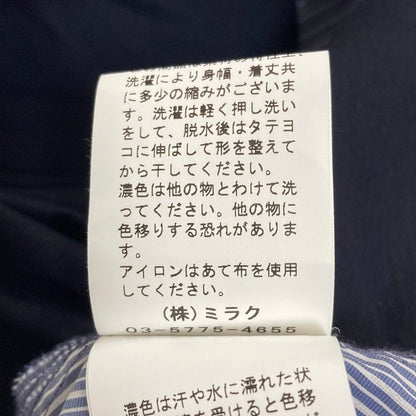 洗濯により身幅・着丈共
に多少の縮みがございま
す。洗濯は軽く押し洗い
をして、脱水後はタテヨ
コに伸ばして形を整えて
から干してください。
濃色は他の物とわけて洗
ってください。他の物に
色移りする恐れがありま
す。
アイロンはあて布を使用
してください。
(株)ミラク
03-5775-4655
濃色は汗や水に濡れた状
を受けると色移